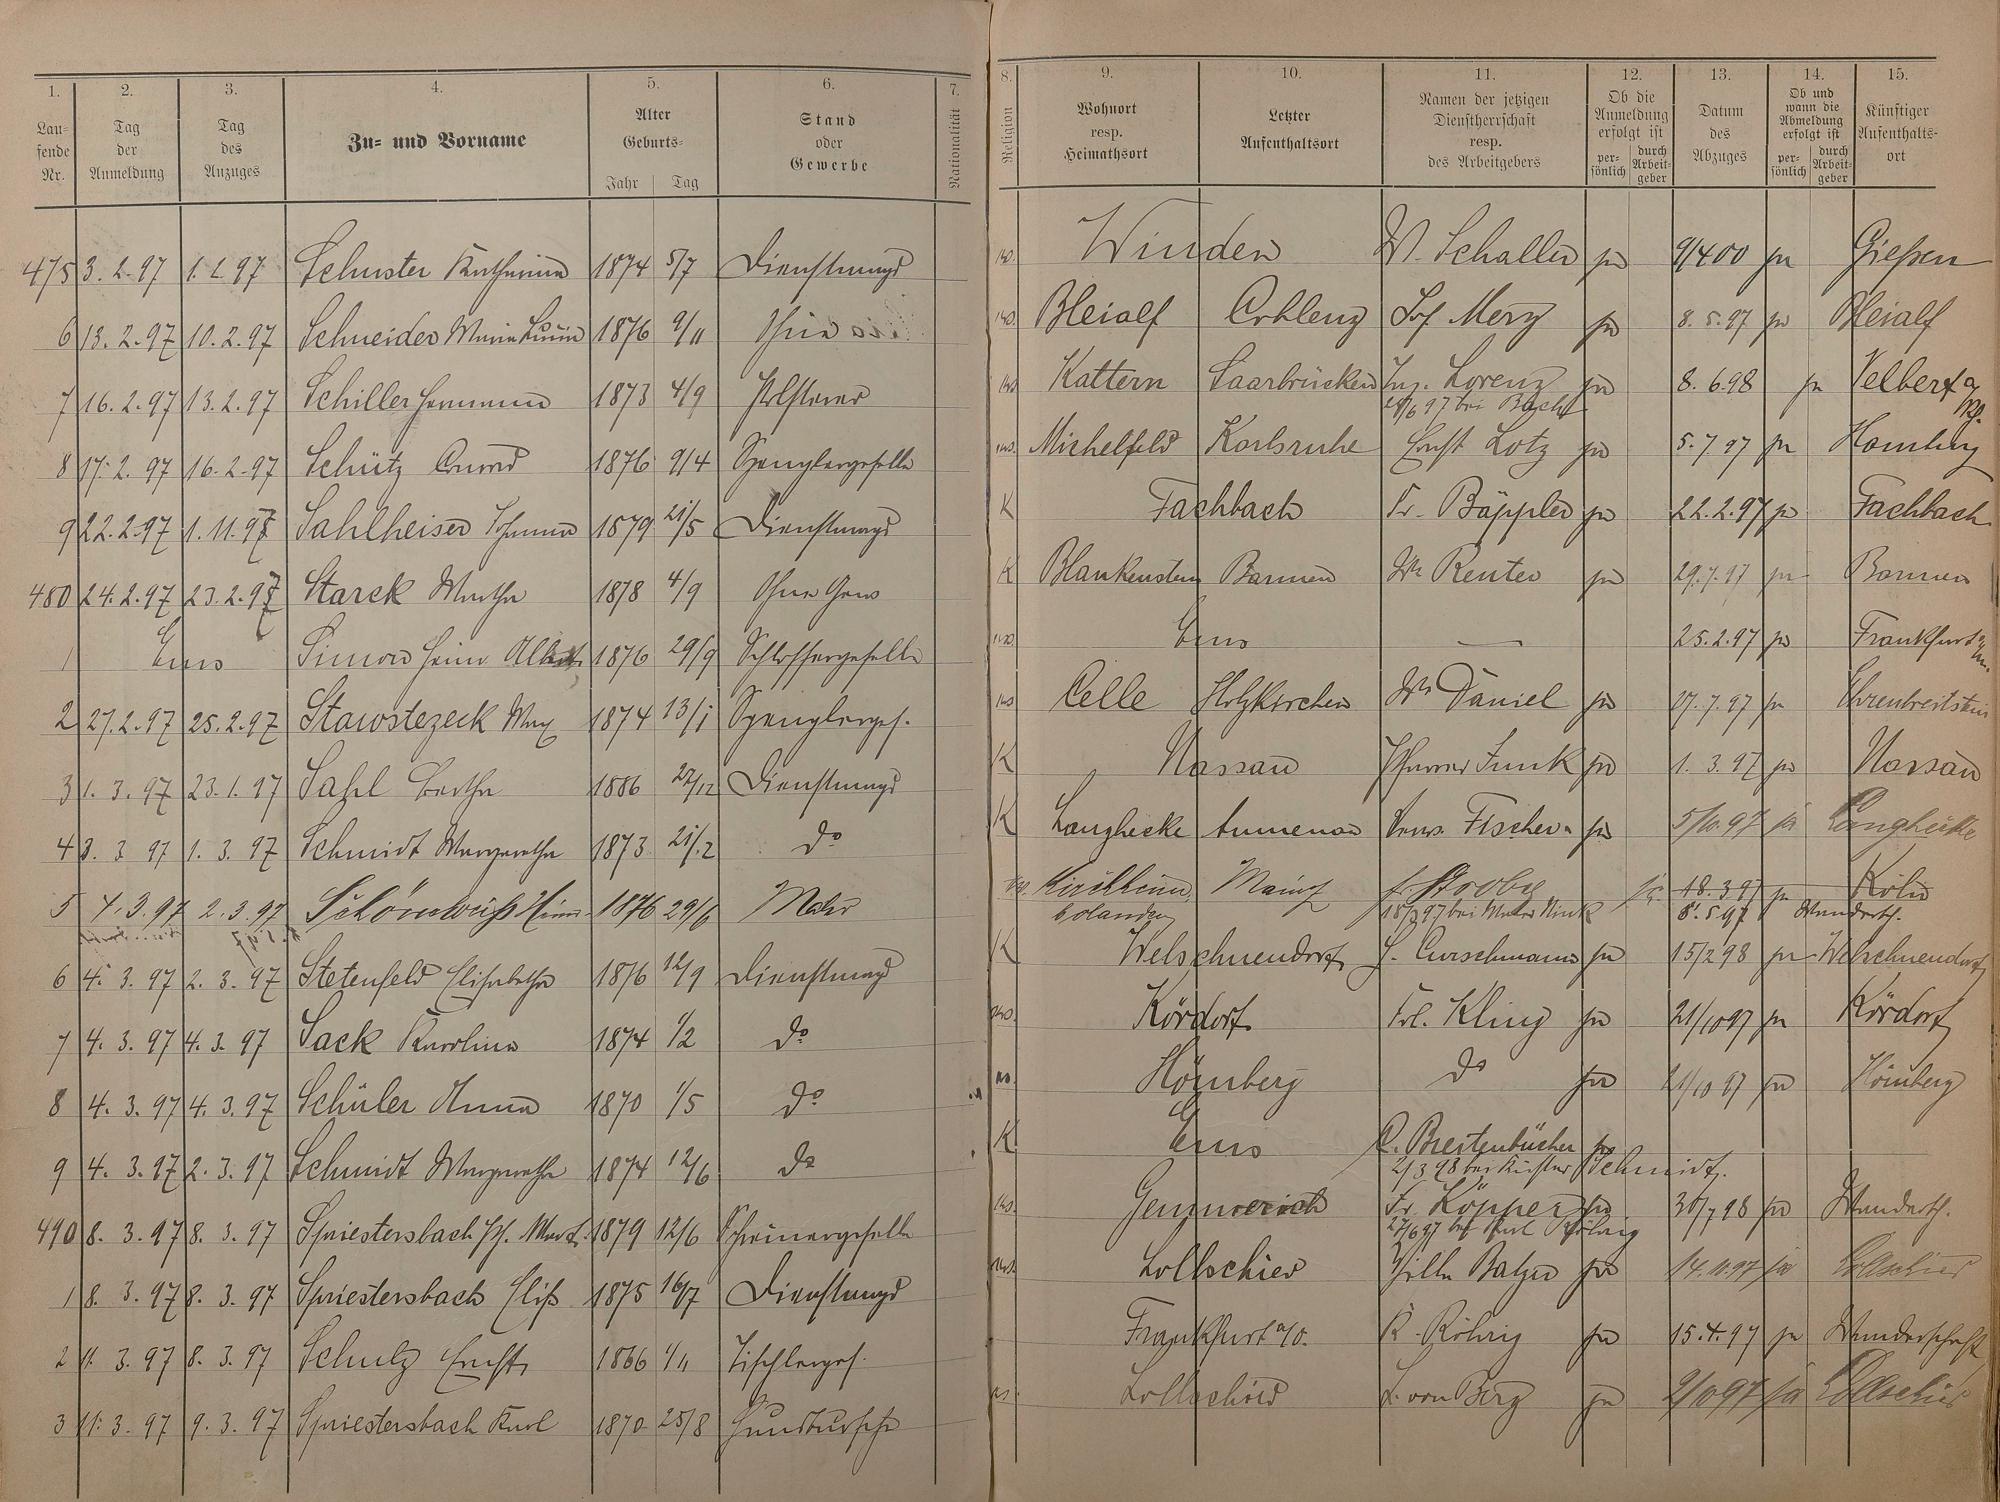 1. 2. 3. 4. 5. 6. 7. 8. 9. 10. 11. 12. 13. 14. 15.
Lau-
fende
Nr.
Tag
der
Anmeldung
Tag
des
Anzuges
Zu- und Vorname
Alter
Geburts-
Jahr Tag
Stand
oder
Gewerbe
Nationalität
Religion
Wohnort
resp.
Heimathsort
Letzter
Aufenthaltsort
Namen der jetzigen
Dienstherrschaft
resp.
des Arbeitgebers
Ob die
Anmeldung
erfolgt ist
per-
sönlich
durch
Arbeit-
geber
Datum
des
Abzuges
Ob und
wann die
Abmeldung
erfolgt ist
per-
sönlich
durch
Arbeit-
geber
Künftiger
Aufenthalts-
ort
475 3. 2. 97 1. 2. 97 Schuster Katharina 1874 5/7 Dienstmagd Winden W. Schaller ja 9/4 00 ja Gießen
6 13. 2. 97 10. 2. 97 Schneider Maria Luise 1876 9/11 Ohne Bleialf Coblenz Jos Merz ja 8. 5. 97 ja Bleialf
7 16. 2. 97 13. 2. 97 Schiller Hermann 1873 4/9 Polsterer Kattern Saarbrücken Lorenz ja 8. 6. 98 ja Velbert
97 bei
8 17. 2. 97 16. 2. 97 Schütz Conrad 1876 9/4 Spenglergeselle Michelfeld Karlsruhe Ernst Lotz ja 5. 7. 97 ja Homburg
9 22. 2. 97 1. 11. 97 Sahlheiser Johanna 1879 21/5 Dienstmagd K Fachbach Fr. Bäppler ja 22. 2. 97 ja Fachbach
480 24. 2. 97 23. 2. 97 Starck Martha 1878 4/9 Ohne Gew K Blankenstein Barmen We Reuter ja 29. 7. 97 ja Barmen
1 Ems Simon Heinr Albert 1876 29/9 Schlossergeselle Ems — 25. 2. 97 ja Frankfurt a/m.
2 27. 2. 97 25. 2. 97 Stawstezeck Max 1874 13/1 Spenglerges. Celle Holzkirchen We Daniel ja 07. 7. 97 ja Ehrenbreitstein
3 1. 3. 97 23. 1. 97 Sahl Bertha 1886 27/12 Dienstmagd K Nassau Pfarrer Funk ja 1. 3. 97 ja Nassau
4 3. 3 97 1. 3. 97 Schmidt Margaretha 1873 21/12 do K Langhecke Aumenau Fischer ja 5/10. 97 ja Langhecke
5 4. 3. 97 2. 3. 97 Schönweiß 1876 29/6 Maler Kirchheim Mainz ja 18. 3 97 ja Köln
bolanden 18/3 97 bei Maler 8. 5. 97 Wandersch.
6 4. 3. 97 2. 3. 97 Stetenfeld Elisabetha 1876 12/9 Dienstmagd K Welschneudorf J. Curschmann ja 15/2 98 ja Welschneudorf
7 4. 3. 97 4. 3. 97 Sack Karolina 1874 1/2 do Kördorf Frl. Kling ja 21/10 97 ja Kördorf
8 4. 3. 97 4. 3. 97 Schüler Anna 1870 1/5 do Hömberg do ja 21/10 97 ja Hömberg
9 4. 3. 97 2. 3. 97 Schmidt Margaretha 1874 12/6 do K Ems C. Breitenbücher ja
2/3 98 bei Küster Schmidt.
490 8. 3. 97 8. 3. 97 Spriestersbach 1879 12/6 Schreinergeselle Gemmerich Fr. Köpper ja 30/7 98 ja Wandersch.
27/6 97 bei Karl Röhrig
1 8. 3. 97 8. 3. 97 Spriestersbach Elis 1875 16/7 Dienstmagd Lollschied Wilh Balzer ja 14. 10. 97 ja Lollschied
2 11. 3. 97 8. 3. 97 Schulz Ernst 1866 1/11 Tischlerges. Frankfurt a/O. K. Röhrig ja 15. 4. 97 ja Wanderschaft
3 11. 3. 97 9. 3. 97 Spriestersbach Karl 1870 25/8 Hausbursche Lollschied L. von Berg ja 2/10 97 ja Lollschied